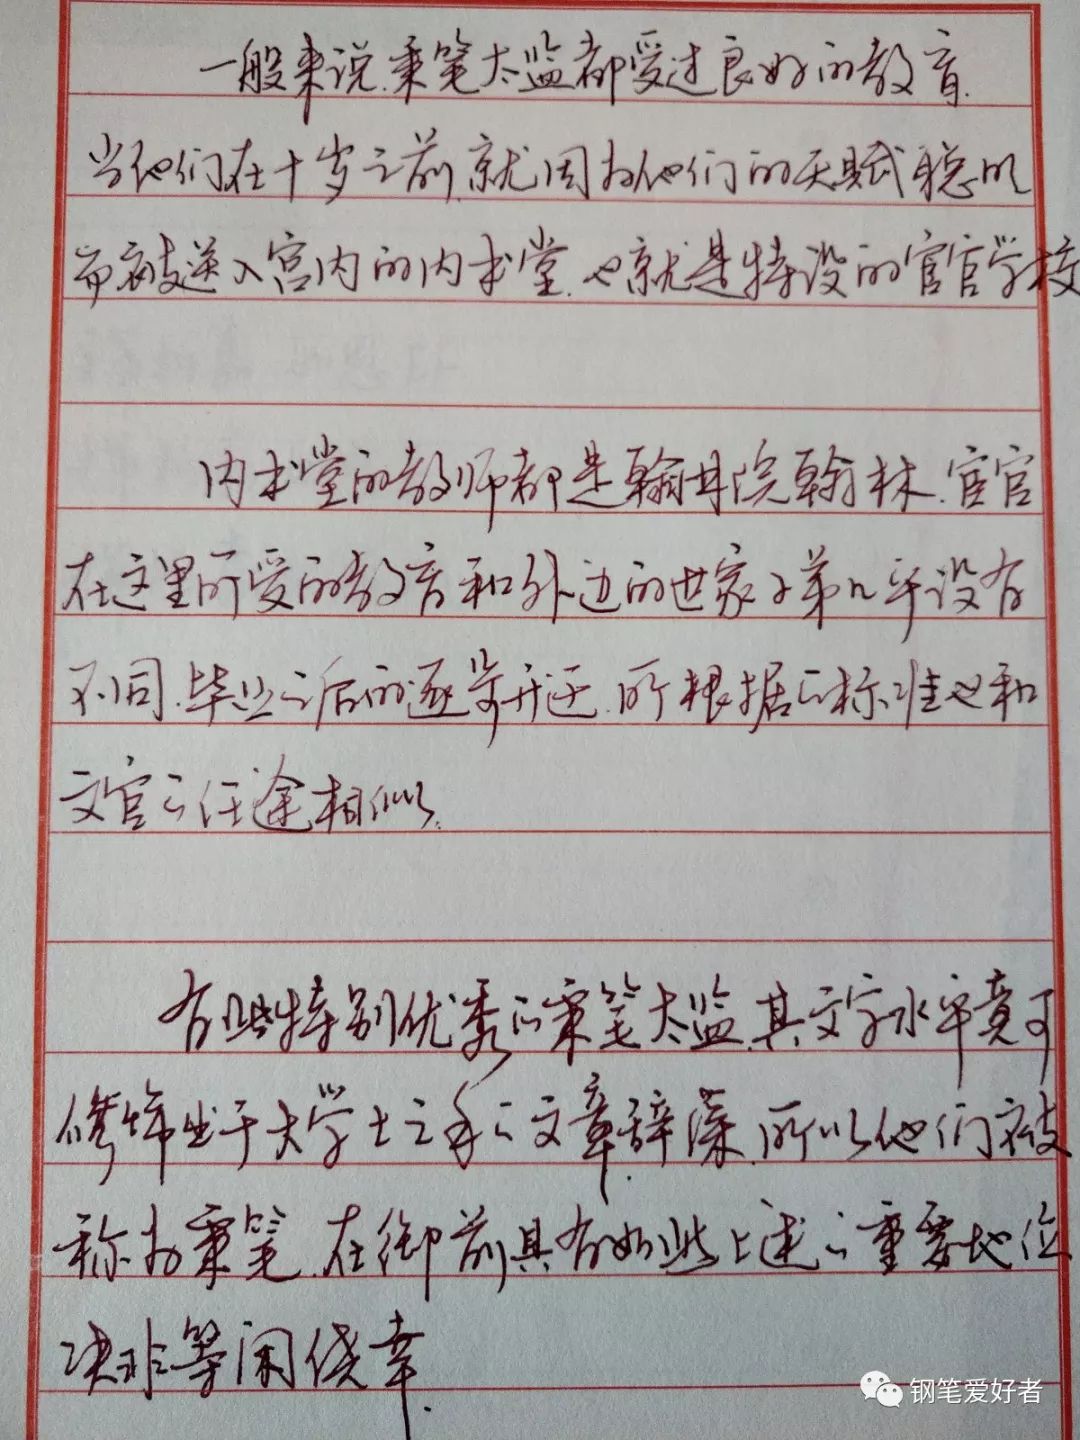 一般来说.秉笔太监都受过良好的教育.
当他们在十岁之前.就因为他们的天赋聪明
而被送入宫内的内书堂.也就是特设的宦官学校
内书堂的教师都是翰林院翰林.宦官
在这里所受的教育和外边的世家子弟几乎没有
不同.毕业之后的逐步升迁.所根据的标准也和
文官的仕途相似.
有些特别优秀的秉笔太监.其文字水平竟可
修饰出于大学士之手的文章辞藻.所以他们被
称为秉笔.在御前具有如此上述的重要地位
决非等闲侥幸.
钢笔爱好者